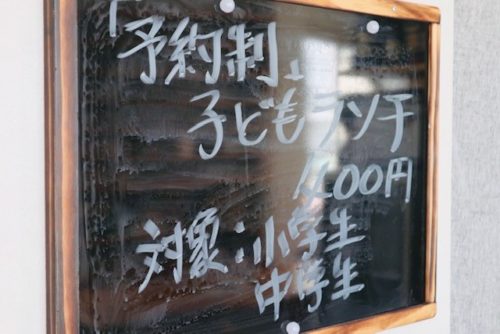 「予約制」
子どもランチ
400円
対象:小学生
中学生